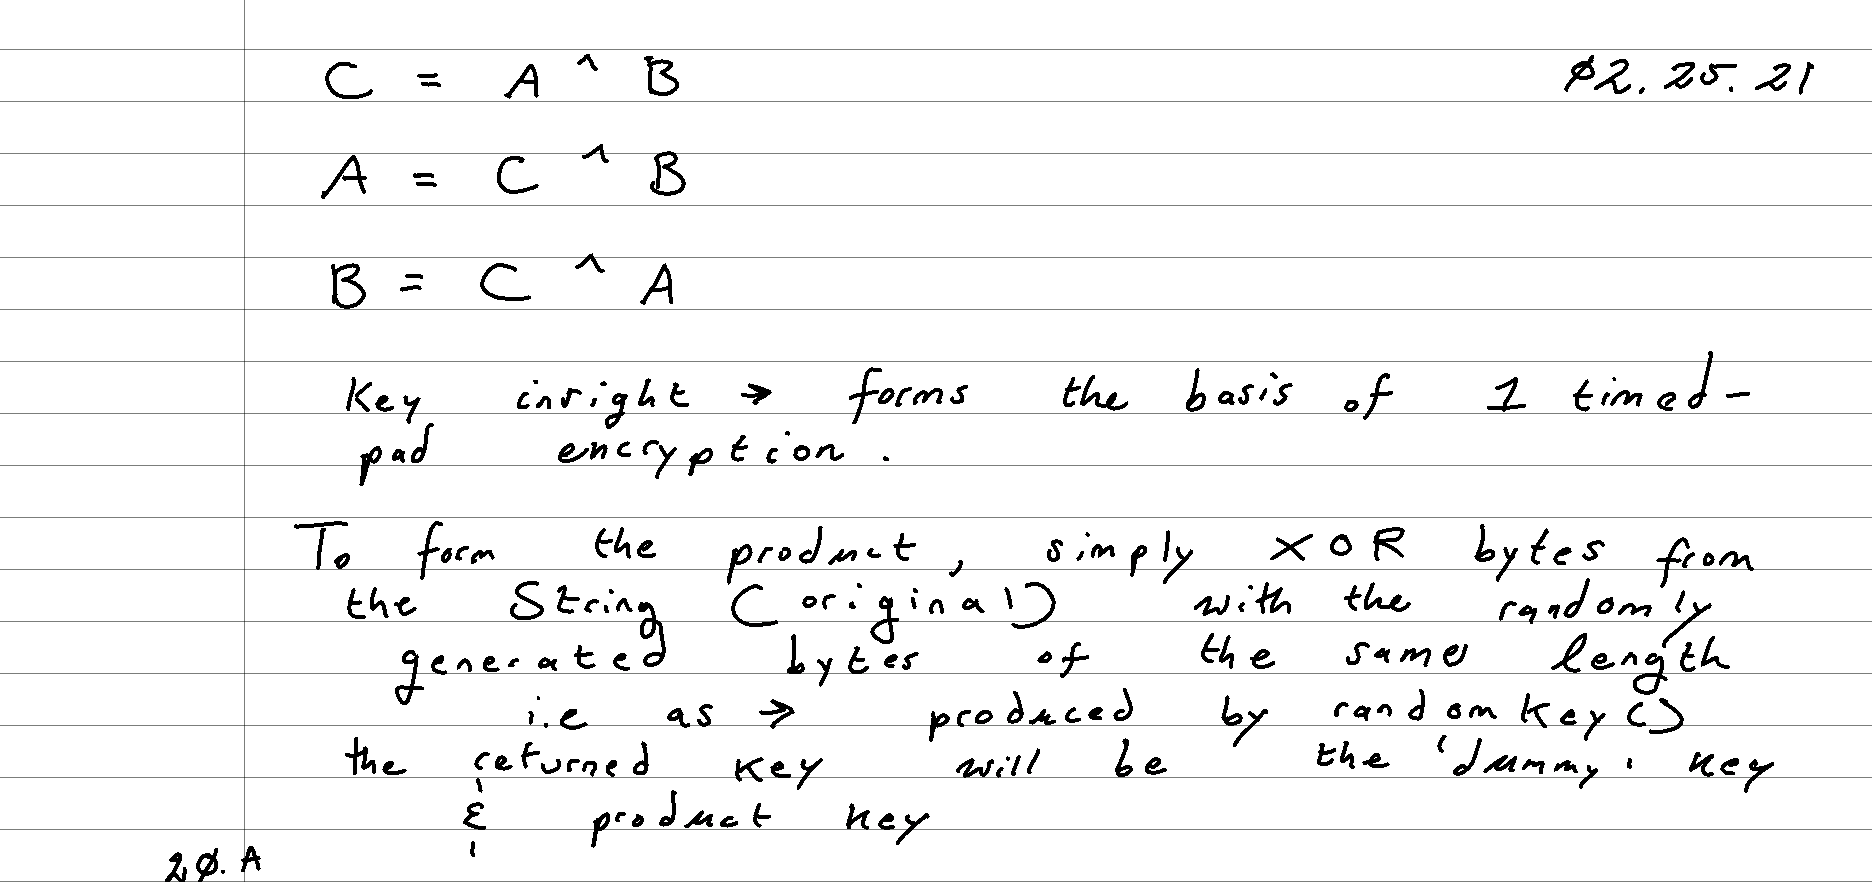 C = A ^ B Ø2.25.21
A = C ^ B
B = C ^ A
Key insight → forms the basis of 1 timed-
pad encryption.
To form the product, simply XOR bytes from
the String (original) with the randomly
generated bytes of the same length
i.e as → produced by randomKey()
the returned key will be the 'dummy' key
& product key
2Ø.A